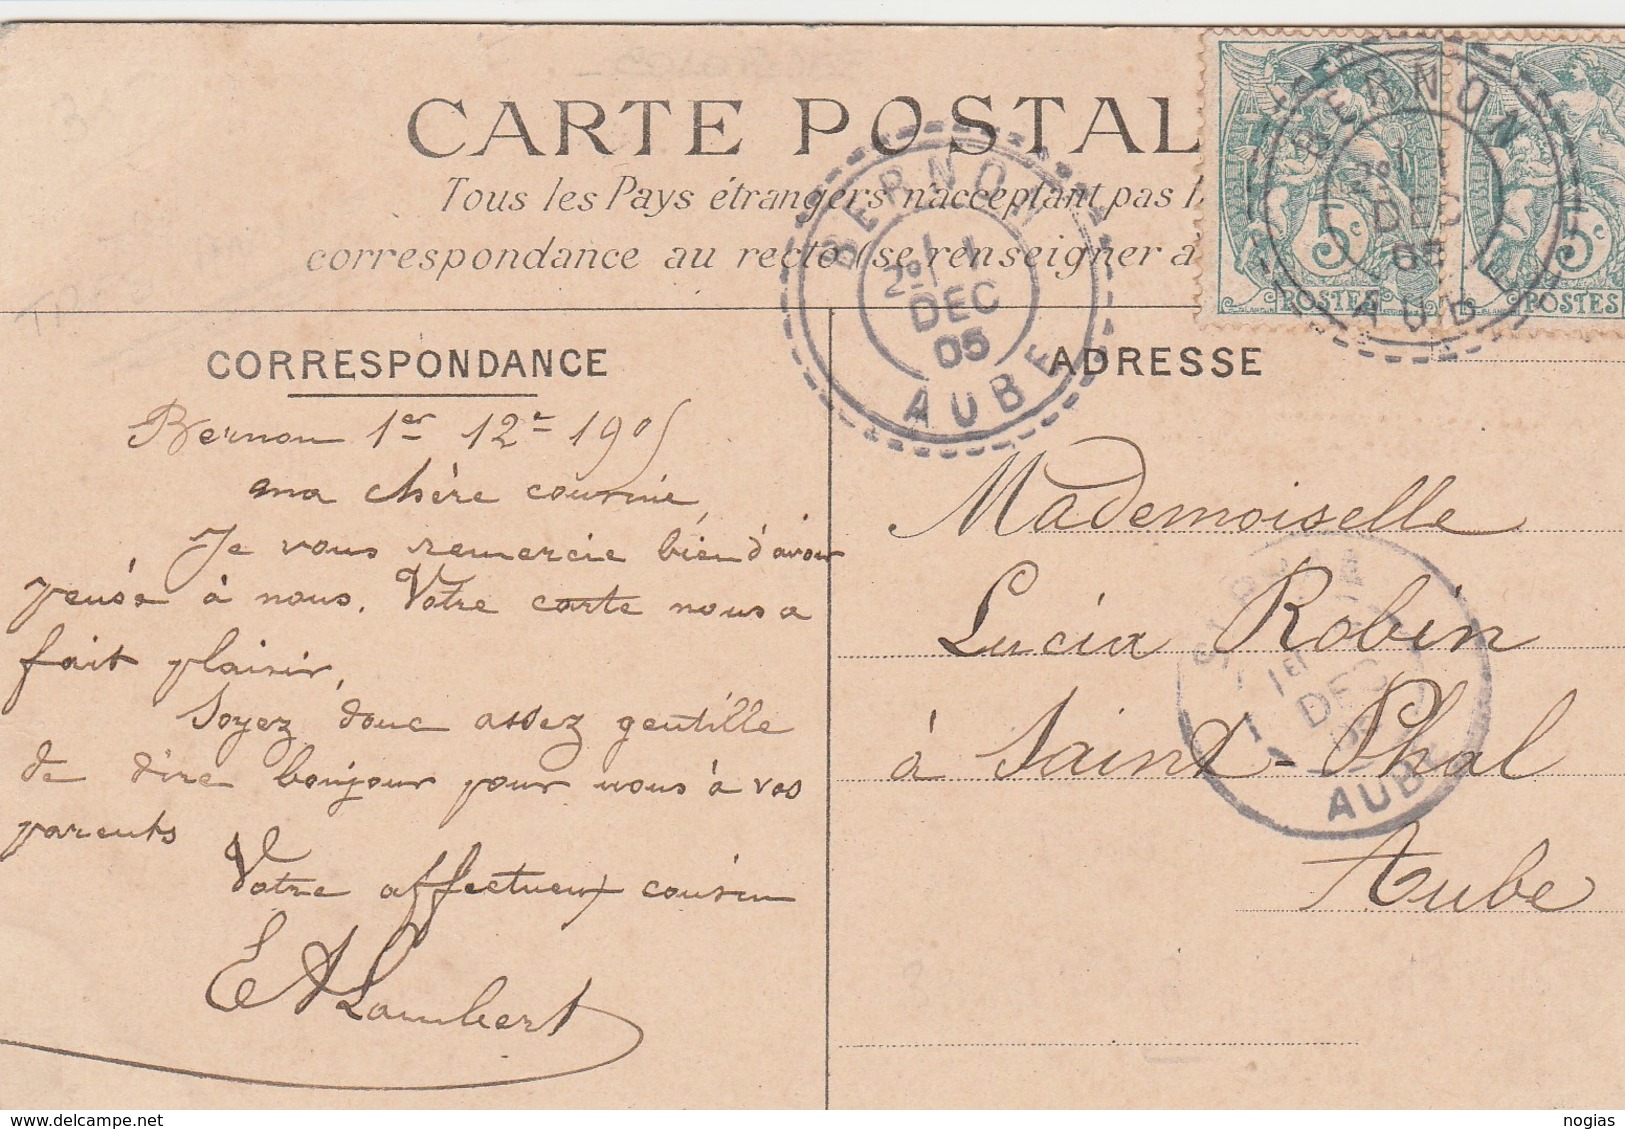 CARTE POSTAL
Tous les Pays étrangers n'acceptant pas l
correspondance au recto (se renseigner a
BERNON
2e 1
DEC
05
AUBE
BERNON
2e 1
DEC
05
AUBE
5c
POSTES
5c
POSTES
CORRESPONDANCE
Bernon 1er 12e 1905
ma chère cousine,
Je vous remercie bien d'avoir
pensé à nous. Votre carte nous a
fait plaisir,
Soyez donc assez gentille
de dire bonjour pour nous à vos
parents
Votre affectueux cousin
EA Lambert
ADRESSE
Mademoiselle
Lucia Robin
à Saint-Phal
Aube
1ER
DEC
05
AUBE
www.delcampe.net
nogias